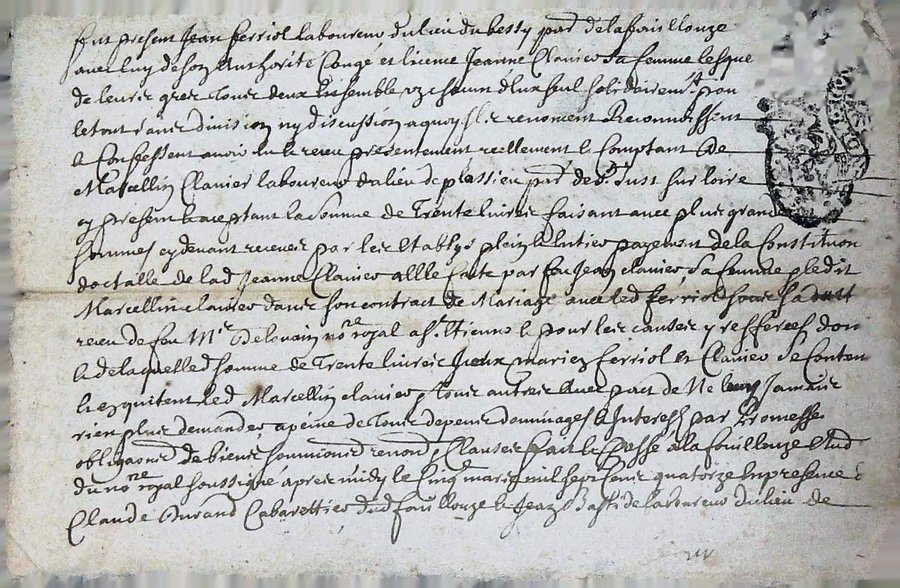 fut present Jean ferriol laboureur du lieu du bessy par de la fouillouze
avec luy de son authorité Congé et licence Jeanne Clavier sa femme lesque
de leurs grez tous deux Ensemble un chacun d'eux seul solidairemt pou
le tout sans division ny discussion a quoy renoncent Reconnoissent
& Confessent avoir eu & receu presentement reellement & Comptant de
Marcellin Clavier laboureur du lieu de plassieu par de St Just sur loire
cy present & acceptant la somme de Trente livres faisant avec plus grande
sommes cy devant receues par les Establys plein & Entier payement de la Constitution
doctalle de lad Jeanne Clavier a Elle faite par feu Jean clavier ledit
Marcellin clavier dans son contract de Mariage avec led ferriol
receu de feu Mre no.re royal a St. Etienne & pour les causes y resferees don
& de laquelle d somme de Trente livres mariez ferriol & Clavier se Conten
& en quitent led Marcellin clavier & tous autres avec pact de Ne luy Jamais
rien plus demander a peine de Tous depens dommages & Interests par Promesse
obligaons de biens soumions renonon & clauses fait & passé a la fouillouze Etud
du no.re royal soussigné apres midy le cinq mars mil sept cens quatorze En presence
Claude Durand Cabarettier dud fouillouze & Jean laboureur du lieu de